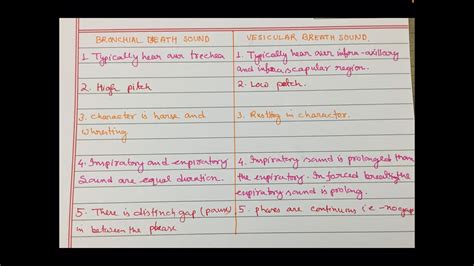 BRONCHIAL BEATH SOUND
VESICULAR BREATH SOUND.
1. Typically hear over trechea
1. Typically hear over infra-axillary
and infrascapular region.
2. High pitch
2. Low petch.
3. Character is harse and
whresting
3. Rustling in character.
4. Inspiratory and expiratory
Sound are equal duration.
4. Inspiratory sound is prolonged than
the expiratory. In forced breathing the
expiratory sound is prolong.
5. There is distinct gap (pause)
in between the phease
5. phases are continuous i.e - no gap